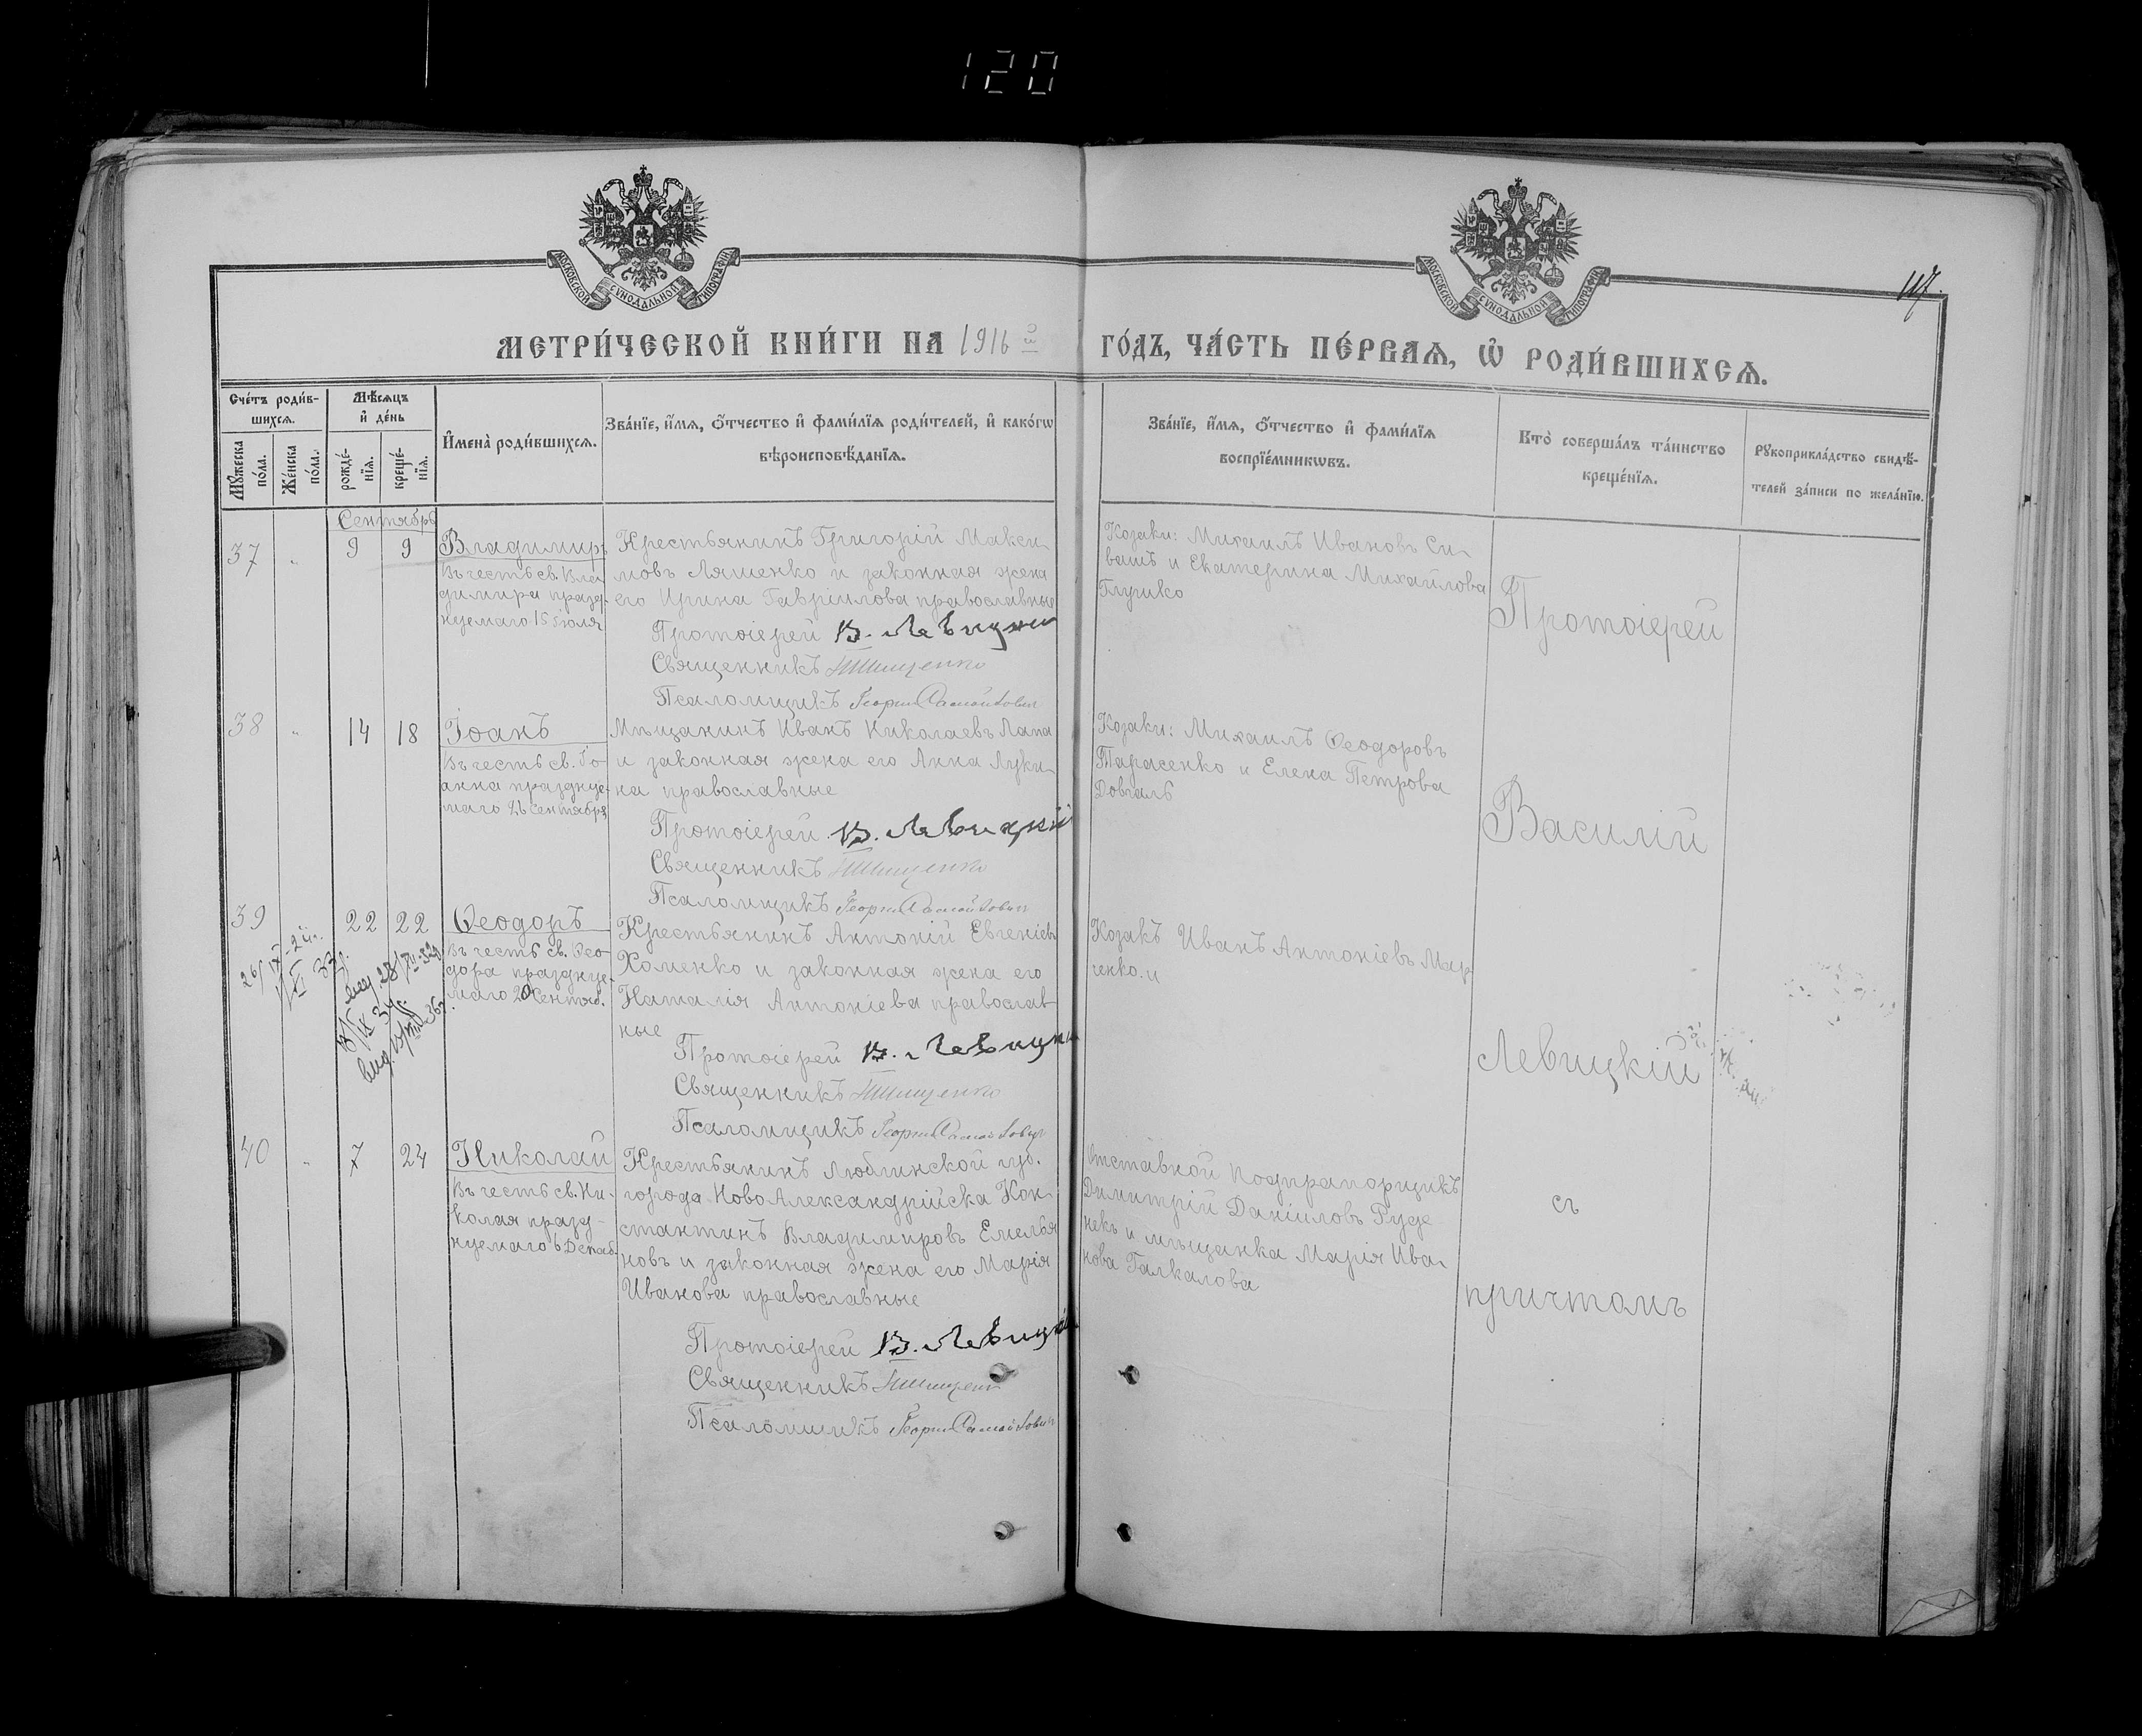 120
МОСКОВСКОЙ СУНОДАЛЬНОЙ ТИПОГРАФІИ
МОСКОВСКОЙ СУНОДАЛЬНОЙ ТИПОГРАФІИ
117.
МЕТРИ́ЧЕСКОЙ КНИ́ГИ НА 1916й ГО́ДЪ, ЧА́СТЬ ПЕ́РВАѦ, Ѡ҆ РОДИ́ВШИХСѦ.
Сче́тъ роди́в-
шихсѧ.
Мѣ́сѧцъ
и҆ де́нь
Мꙋ́жеска по́ла.
Же́нска по́ла.
рожде́-
нїѧ.
креще́-
нїѧ.
И҆мена̀ роди́вшихсѧ.
Зва́нїе, и҆́мѧ, ѻ҆́тчество и҆ фами́лїѧ роди́телей, и҆ како́гѡ
вѣроисповѣ́данїѧ.
Зва́нїе, и҆́мѧ, ѻ҆́тчество и҆ фами́лїѧ
воспрїе́мникѡвъ.
Кто̀ соверша́лъ та́инство
креще́нїѧ.
Рꙋкоприкла́дство свидѣ́-
телей за́писи по жела́нїю.
Сентябрь
37 " 9 9 Владимиръ
Въ честь св. Вла-
димира празд-
нуемаго 15 іюля
Крестьянинъ Григорій Макси-
мовъ Ляшенко и законная жена
его Ирина Гавріилова православные
Протоіерей В. Левицкій
Священникъ
Псаломщикъ Георгій Самойлович
Козаки: Михаилъ Ивановъ Си-
вашъ и Екатерина Михайлова
Глушко
38 " 14 18 Іоанъ
Въ честь св. Іо-
анна празднуе-
маго 26 сентября
Мѣщанинъ Иванъ Николаевъ Лапа
и законная жена его Анна Луки-
на православные
Протоіерей В. Левицкій
Священникъ
Псаломщикъ Георгій Самойлович
Козаки: Михаилъ Ѳеодоровъ
Тарасенко и Елена Петрова
Довгаль
39 22 22 Ѳеодоръ
Въ честь св. Ѳео-
дора празднуе-
маго 20 Сентяб.
Крестьянинъ Антоній Евгеніевъ
Хоменко и законная жена его
Наталія Антоніева православ-
ные
Протоіерей В. Левицкій
Священникъ
Псаломщикъ Георгій Самойлович
Козакъ Иванъ Антоніевъ Мар-
ченко. и
40 " 7 24 Николай
Въ честь св. Ни-
колая празд-
нуемаго 6 Декаб.
Крестьянинъ Люблинской губ.
города НовоАлександрійска Кон-
стантинъ Владимировъ Емелья-
новъ и законная жена его Марія
Иванова православные
Протоіерей В. Левицкій
Священникъ
Псаломщикъ Георгій Самойлович
Отставной Подпрапорщикъ
Димитрій Даніиловъ Руде-
некъ и мѣщанка Марія Ива-
нова Галкалова
Протоіерей
Василій
Левицкій
съ
причтомъ